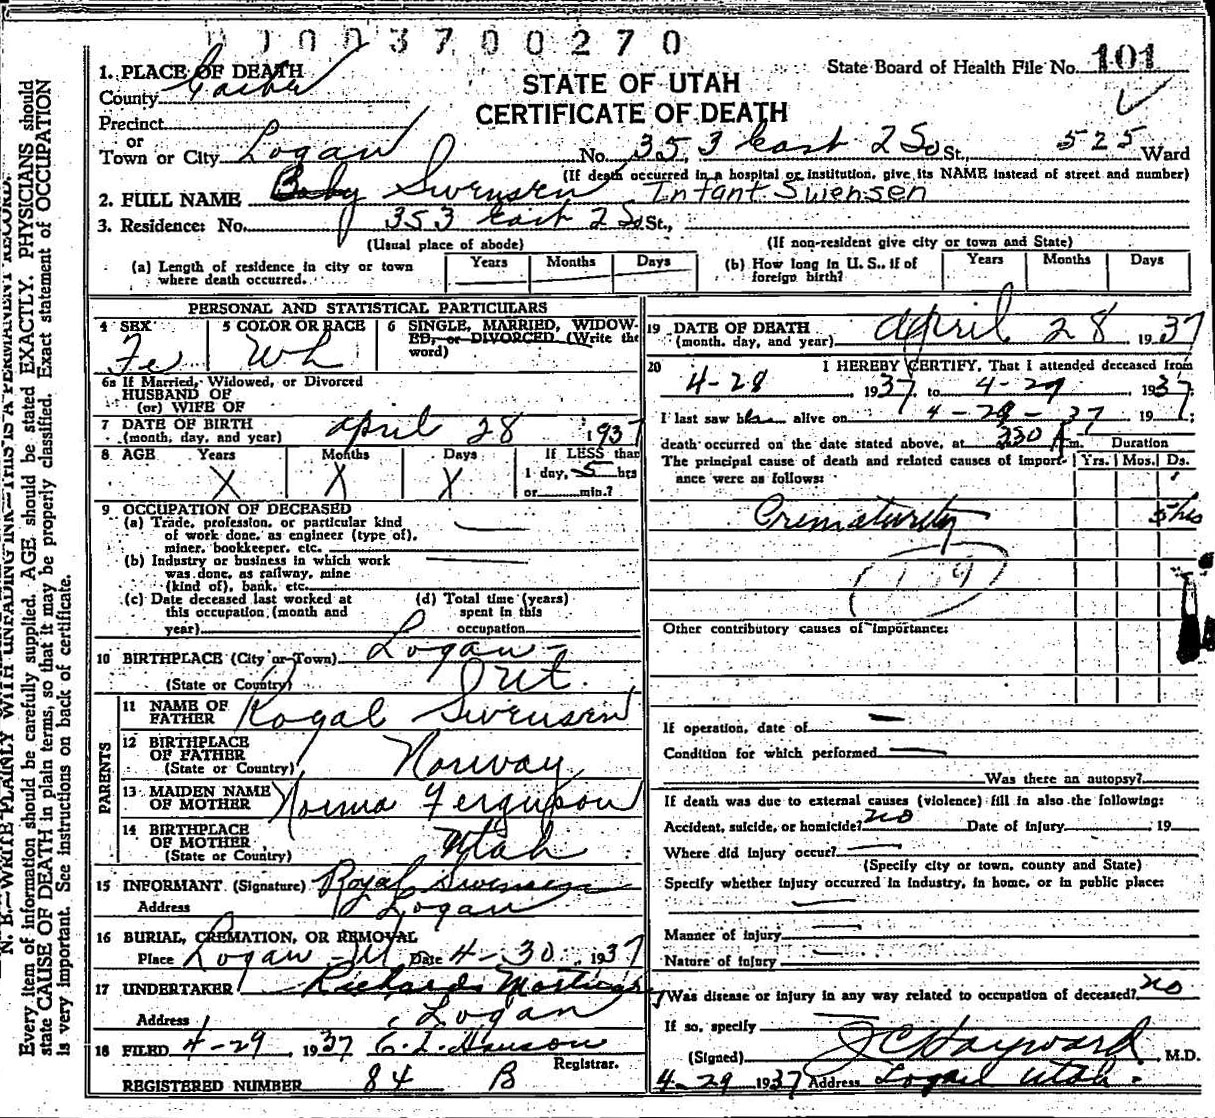 003700270
1. PLACE OF DEATH
County Cache
STATE OF UTAH
CERTIFICATE OF DEATH
State Board of Health File No. 101
Precinct
or
Town or City Logan No. 353 East 2 So St., 525 Ward
(If death occurred in a hospital or institution, give its NAME instead of street and number)
2. FULL NAME Baby Swensen Infant Swensen
3. Residence: No. 353 East 2 So St.,
(Usual place of abode) (If non-resident give city or town and State)
(a) Length of residence in city or town where death occurred. Years Months Days
(b) How long in U. S., if of foreign birth? Years Months Days
PERSONAL AND STATISTICAL PARTICULARS
4 SEX Fe
5 COLOR OR RACE Wh
6 SINGLE, MARRIED, WIDOWED, or DIVORCED (Write the word)
6a If Married, Widowed, or Divorced
HUSBAND OF
(or) WIFE OF
7 DATE OF BIRTH (month, day, and year) April 28 1937
8 AGE Years X Months X Days X If LESS than 1 day, 5 hrs or min.?
9 OCCUPATION OF DECEASED
(a) Trade, profession, or particular kind of work done, as engineer (type of), miner, bookkeeper, etc.
(b) Industry or business in which work was done, as railway, mine (kind of), bank, etc.
(c) Date deceased last worked at this occupation (month and year)
(d) Total time (years) spent in this occupation
10 BIRTHPLACE (City or Town) Logan
(State or Country) Ut.
PARENTS
11 NAME OF FATHER Royal Swensen
12 BIRTHPLACE OF FATHER (State or Country) Norway
13 MAIDEN NAME OF MOTHER Norma Ferguson
14 BIRTHPLACE OF MOTHER (State or Country) Utah
15 INFORMANT (Signature) Royal Swensen
Address Logan
16 BURIAL, CREMATION, OR REMOVAL
Place Logan Ut Date 4-30 1937
17 UNDERTAKER Richards Mortuary
Address Logan
18 FILED 4-29 1937 Registrar.
REGISTERED NUMBER 84 B
19 DATE OF DEATH (month, day, and year) April 28 1937
20 I HEREBY CERTIFY, That I attended deceased from
4-28 1937 to 4-29 1937
I last saw h alive on 37 19 ;
death occurred on the date stated above, at 330 A m. Duration
The principal cause of death and related causes of importance were as follows: Yrs. Mos. Ds.
Prematurity 5 hrs
Other contributory causes of importance:
If operation, date of
Condition for which performed
Was there an autopsy?
If death was due to external causes (violence) fill in also the following:
Accident, suicide, or homicide? no Date of injury 19
Where did injury occur?
(Specify city or town, county and State)
Specify whether injury occurred in industry, in home, or in public place:
Manner of injury
Nature of injury
Was disease or injury in any way related to occupation of deceased? no
If so, specify
(Signed) J C Hayward M.D.
4-29 1937 Address Logan Utah.
N. B.—WRITE PLAINLY WITH UNFADING INK—THIS IS A PERMANENT RECORD.
Every item of information should be carefully supplied. AGE should be stated EXACTLY. PHYSICIANS should
state CAUSE OF DEATH in plain terms, so that it may be properly classified. Exact statement of OCCUPATION
is very important. See instructions on back of certificate.